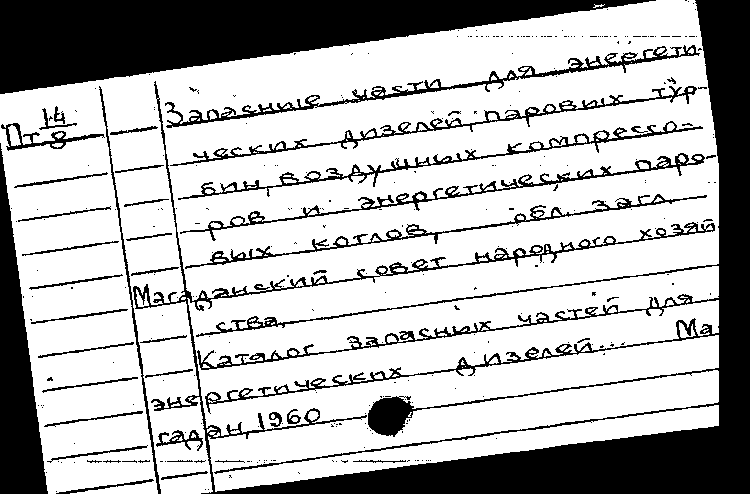 Пт 14/8
Запасные части для энергети-
ческих дизелей, паровых тур-
бин, воздушных компрессо-
ров и энергетических паро-
вых котлов, обл. загл.
Магаданский совет народного хозяй
ства,
Каталог запасных частей для
энергетических дизелей... Ма
гадан, 1960